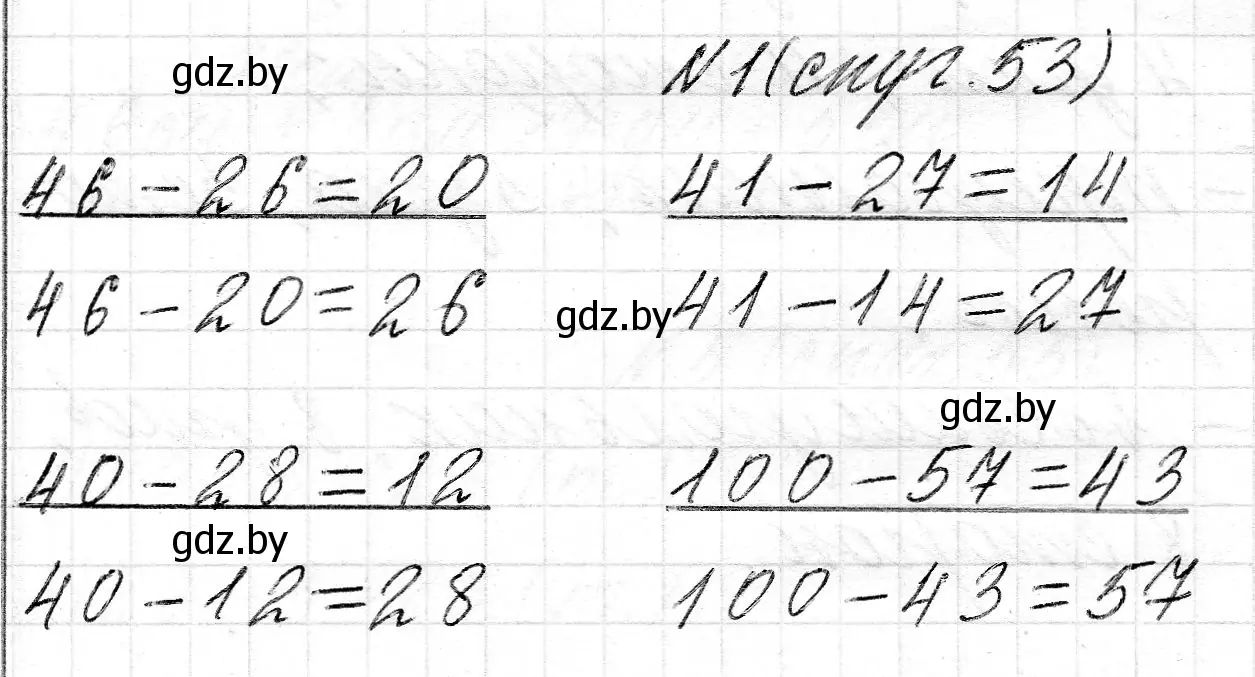 gdz.by
N 1 (
53)
46 - 26 = 20
41 - 27 = 14
46 - 20 = 26
gdz.by
41 - 14 = 27
gdz.by
40 - 28 = 12
100 - 57 = 43
gdz.by
40 - 12 = 28
100 - 43 = 57